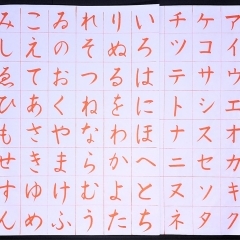 アイウエオカキク
ケコサシスセソタ
チツテトナニヌネ
いろはにほへとち
りぬるをわかよた
れそつねならむう
ゐのおくやまけふ
こえてあさきゆめ
みしゑひもせすん